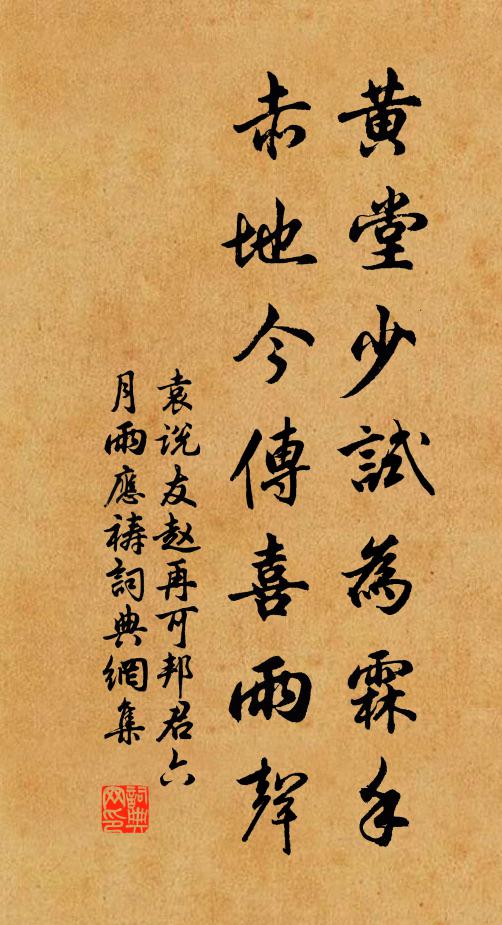 黄堂少試為霖手
赤地今傳喜雨聲
袁説友赵再可邦君六
月雨應禱詞典網集
詞典网印